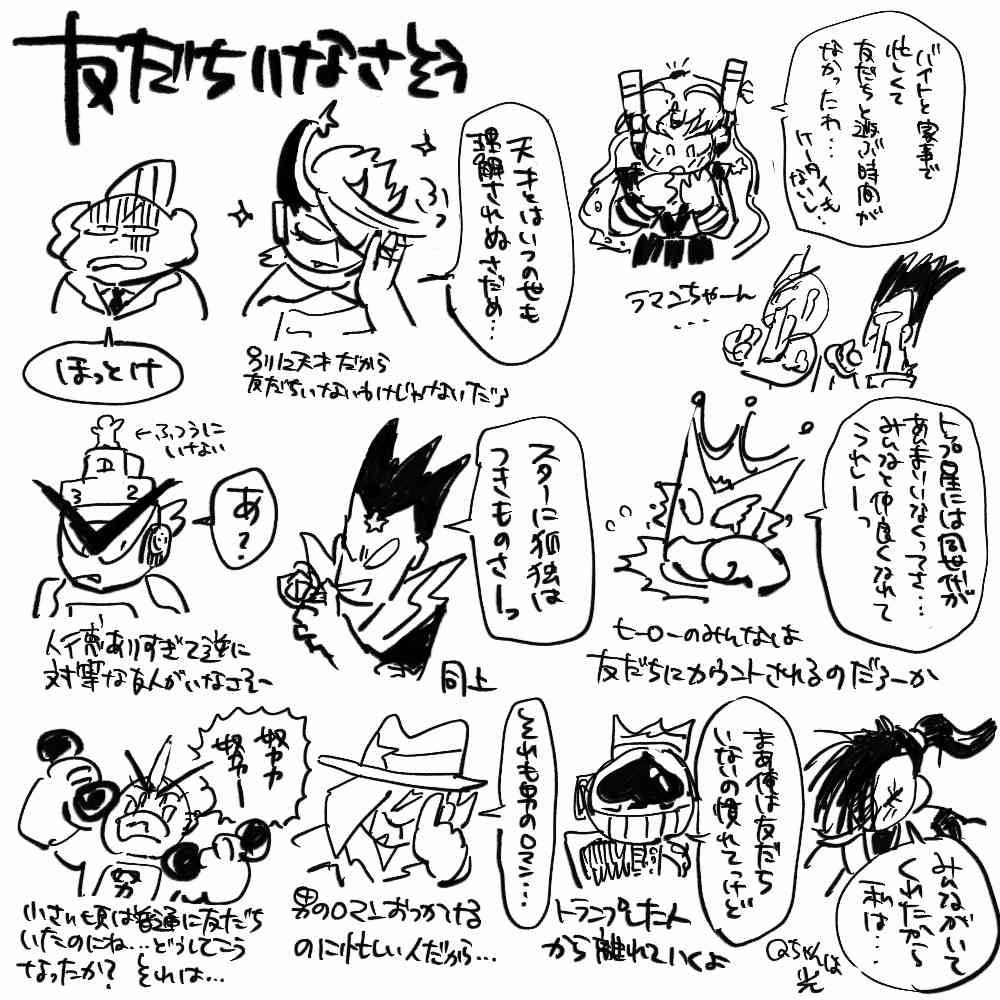 友だちいなさそう
バイトと家事で
忙しくて
友だちと遊ぶ時間が
なかったわ…
ケータイも
ないし…
ラマンちゃーん
…
天才とはいつの世も
理解されぬさだめ…
ふっ
別に天才だから
友だちいないわけじゃないだろ
ほっとけ
トップ星には同世代が
あんまりいなくってさ…
みんなと仲良くなれて
うれしーっ
ヒーローのみんなは
友だちにカウントされるのだろーか
スターに孤独は
つきものさーっ
同上
←ふつうに
いけない
D
3 2
あ?
人徳ありすぎて逆に
対等な友人がいなさそー
努力
努力ー
努
小さい頃は普通に友だち
いたのにね…どうしてこう
なったか? それは…
それも男のロマン…
男のロマンおっかけてる
のに忙しい人だから…
まあ俺は友だち
いないの慣れてっけど
トランプした人
から離れていくよ
みんながいて
くれたから
私は…
Qちゃんは
光